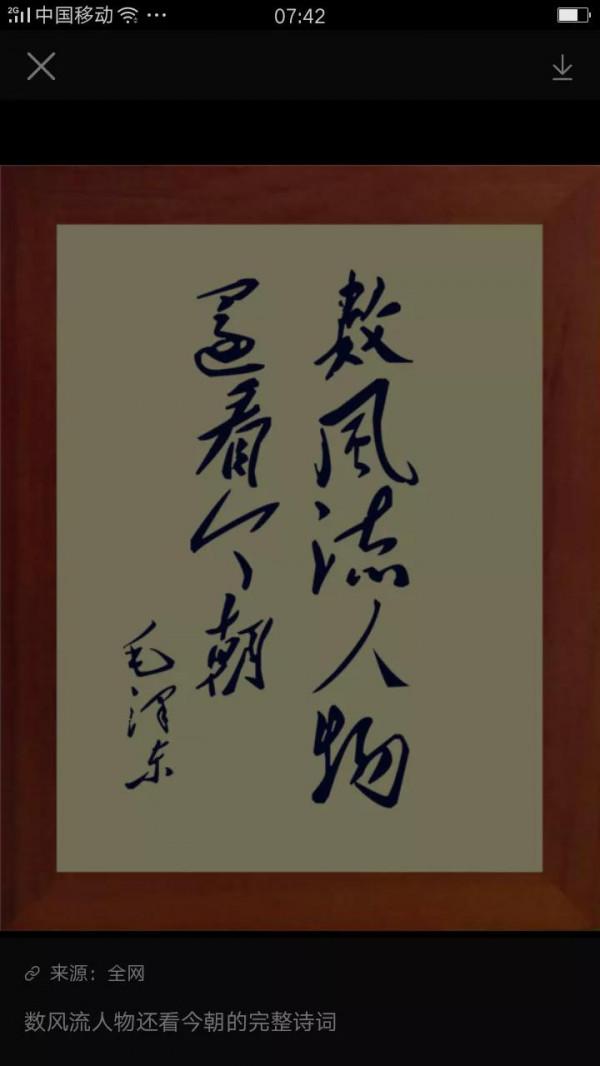 2G 中国移动 ... 07:42
數風流人物
還看今朝
毛泽东
来源：全网
数风流人物还看今朝的完整诗词